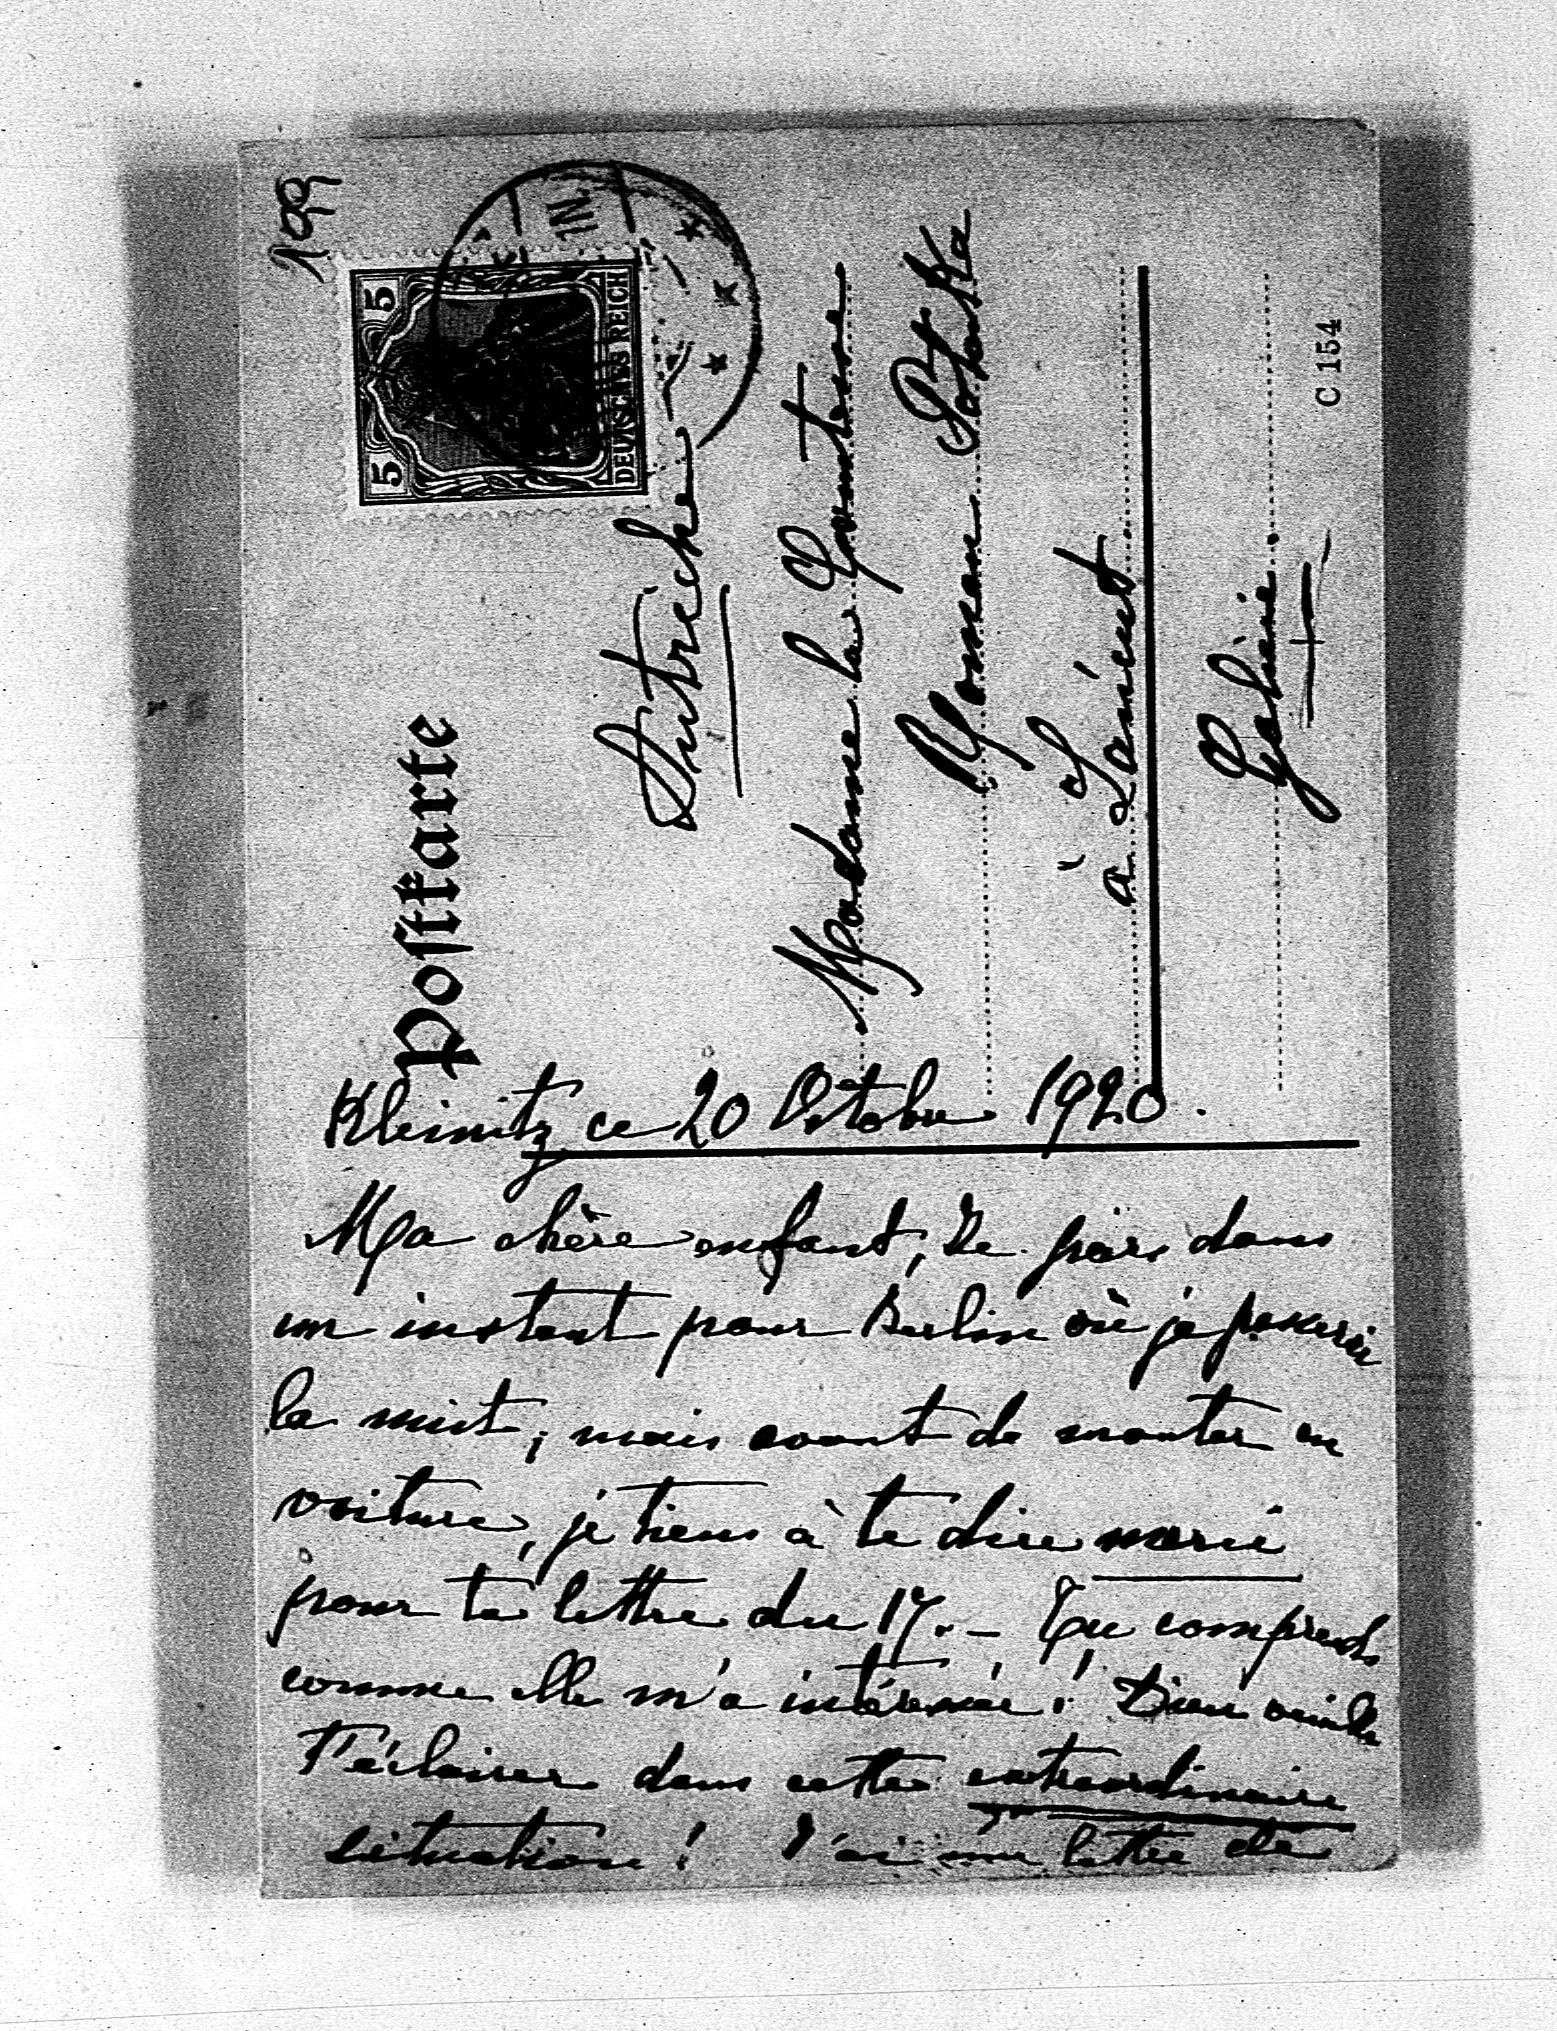 199
5 5
DEUTSCHES REICH
Postkarte
Autriche
Madame la Comtesse
Roman Potocka
à Łańcut
Galicie
C 154
Kleinitz ce 20 Octobre 1920.
Ma chère enfant, Je pars dans
un instant pour Berlin où je passerai
la nuit, mais avant de monter en
voiture, je tiens à te dire merci
pour ta lettre du 17. – Tu comprends
comme elle m'a intéressée! Dieu veuille
t'éclairer dans cette extraordinaire
situation! J'ai une lettre de